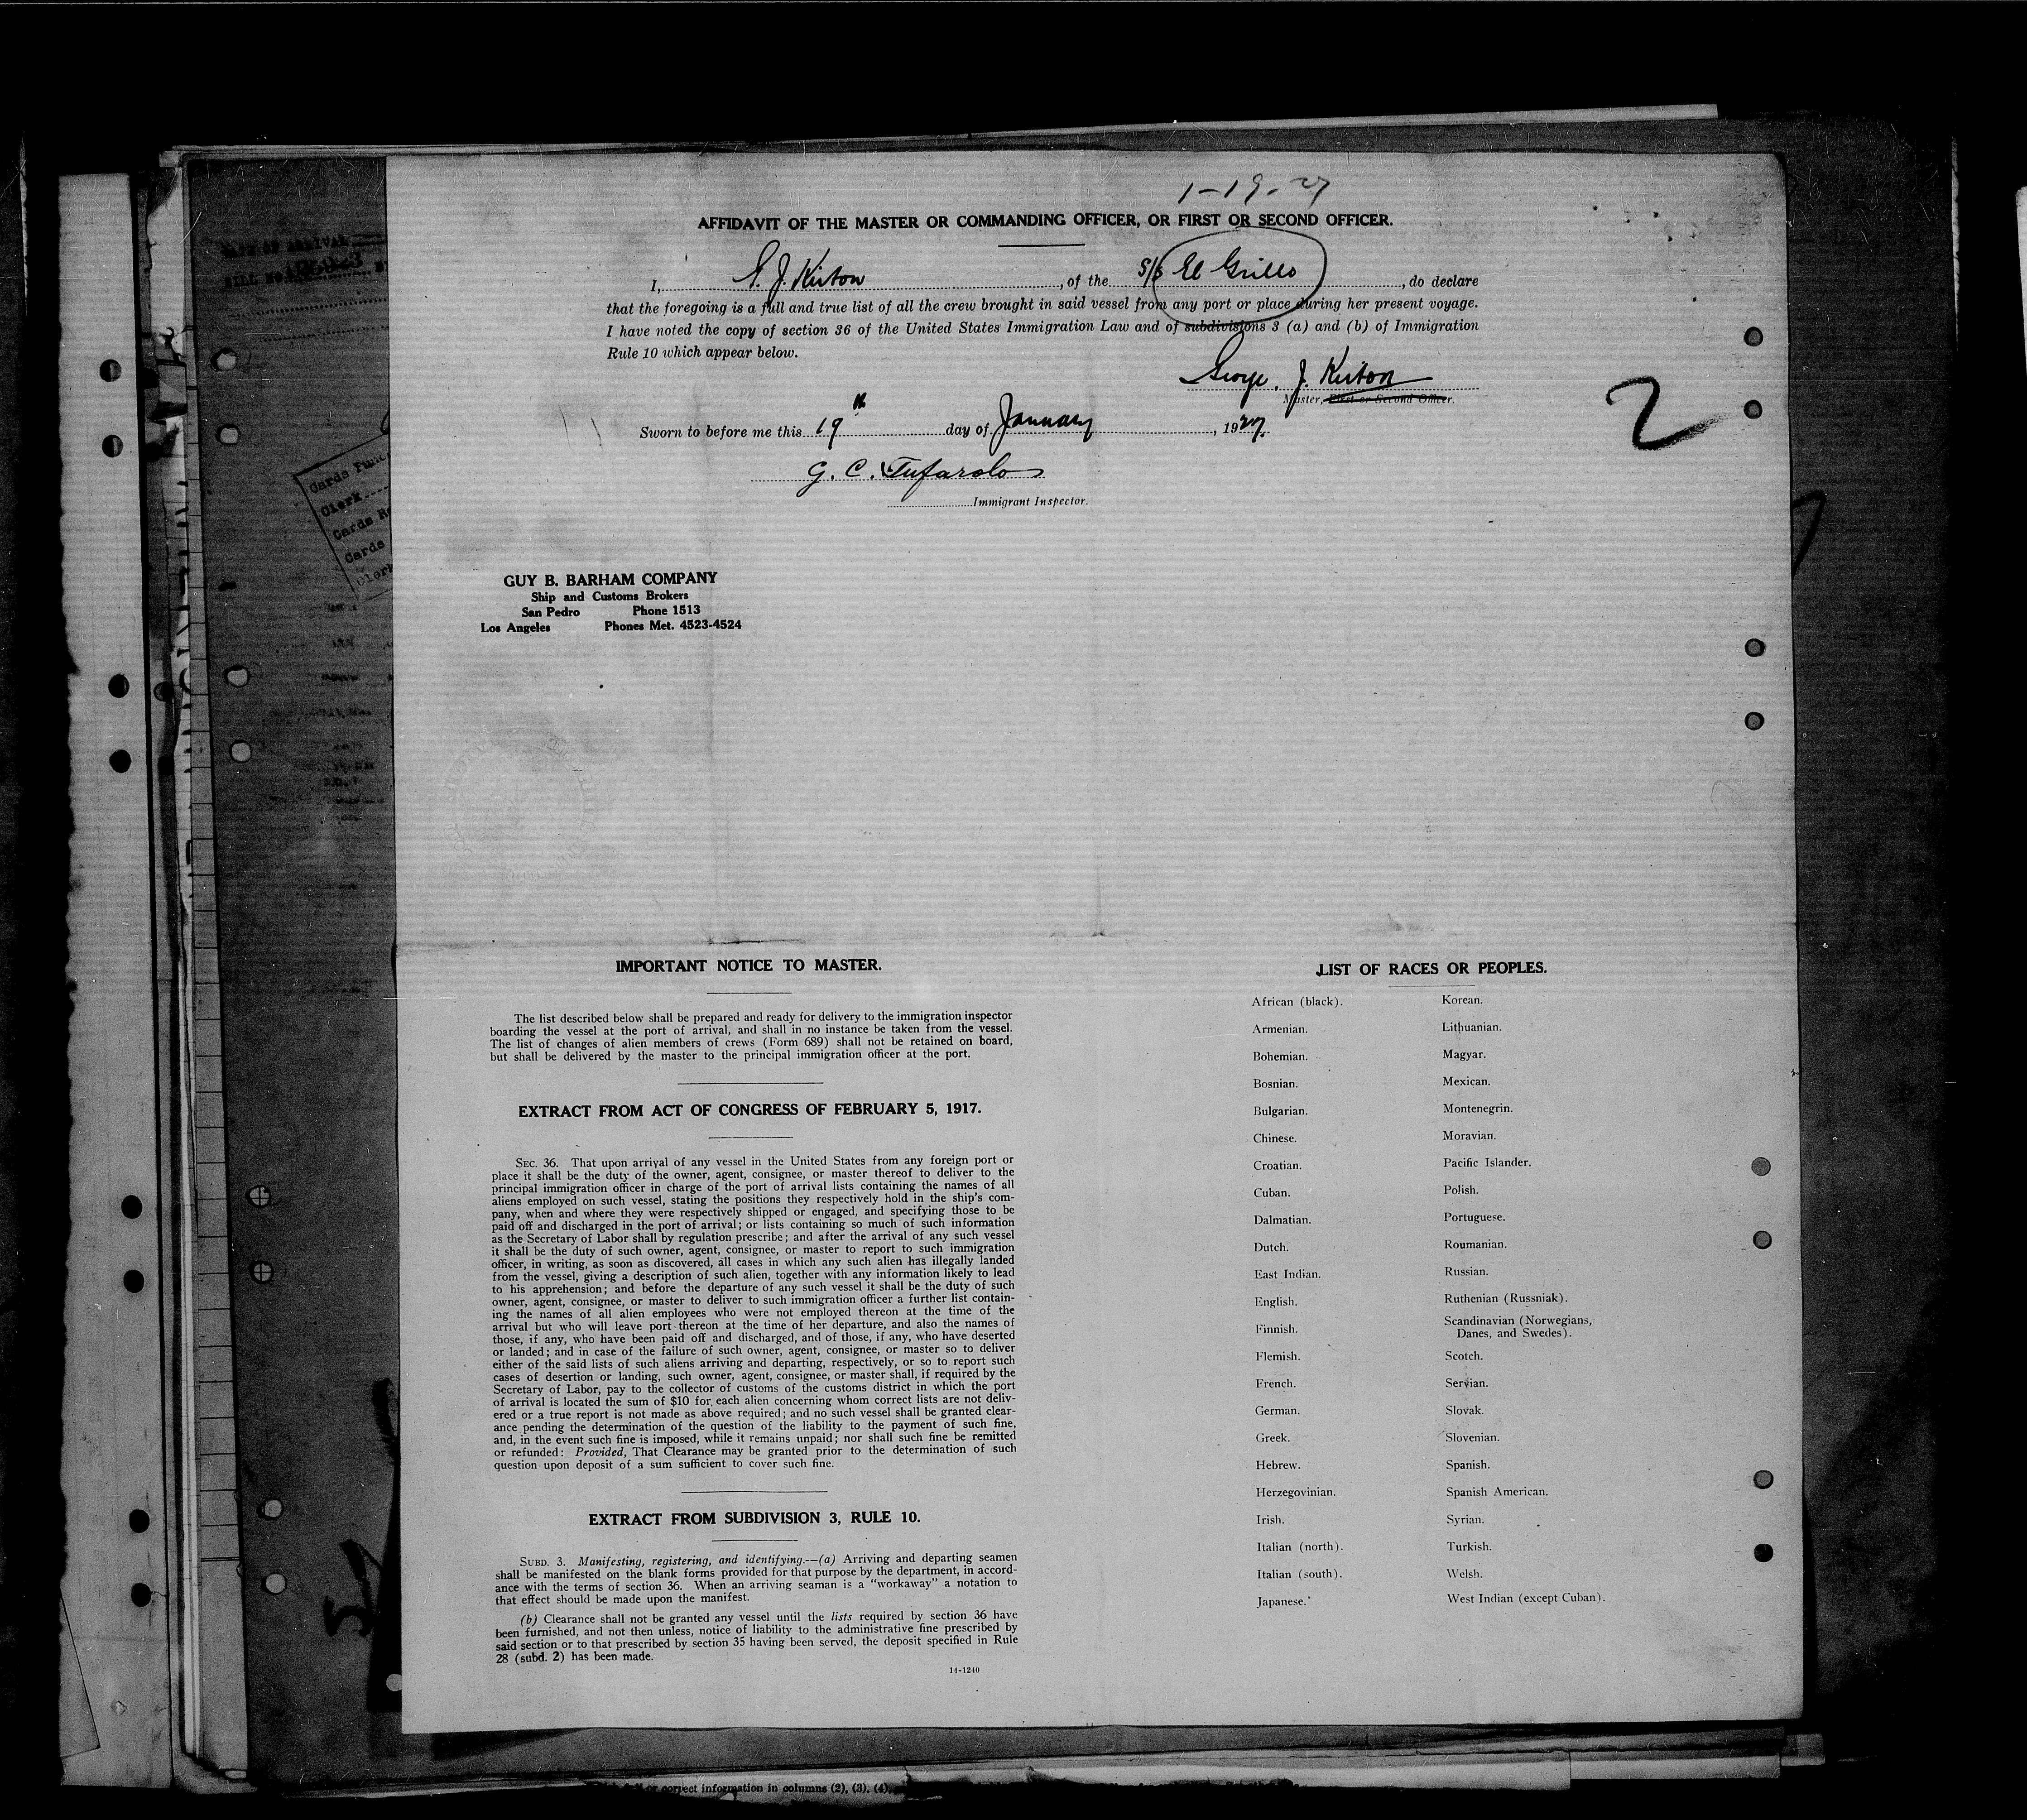 1-19-27
AFFIDAVIT OF THE MASTER OR COMMANDING OFFICER, OR FIRST OR SECOND OFFICER.
I, G. J. Kirton, of the S/S El Grillo, do declare
that the foregoing is a full and true list of all the crew brought in said vessel from any port or place during her present voyage.
I have noted the copy of section 36 of the United States Immigration Law and of subdivisions 3 (a) and (b) of Immigration
Rule 10 which appear below.
George. J. Kirton
Master, First or Second Officer.
2
Sworn to before me this 19th day of January, 1927.
G. C. Tufarolo
Immigrant Inspector.
GUY B. BARHAM COMPANY
Ship and Customs Brokers
San Pedro Phone 1513
Los Angeles Phones Met. 4523-4524
IMPORTANT NOTICE TO MASTER.
The list described below shall be prepared and ready for delivery to the immigration inspector
boarding the vessel at the port of arrival, and shall in no instance be taken from the vessel.
The list of changes of alien members of crews (Form 689) shall not be retained on board,
but shall be delivered by the master to the principal immigration officer at the port.
EXTRACT FROM ACT OF CONGRESS OF FEBRUARY 5, 1917.
SEC. 36. That upon arrival of any vessel in the United States from any foreign port or
place it shall be the duty of the owner, agent, consignee, or master thereof to deliver to the
principal immigration officer in charge of the port of arrival lists containing the names of all
aliens employed on such vessel, stating the positions they respectively hold in the ship's com-
pany, when and where they were respectively shipped or engaged, and specifying those to be
paid off and discharged in the port of arrival; or lists containing so much of such information
as the Secretary of Labor shall by regulation prescribe; and after the arrival of any such vessel
it shall be the duty of such owner, agent, consignee, or master to report to such immigration
officer, in writing, as soon as discovered, all cases in which any such alien has illegally landed
from the vessel, giving a description of such alien, together with any information likely to lead
to his apprehension; and before the departure of any such vessel it shall be the duty of such
owner, agent, consignee, or master to deliver to such immigration officer a further list contain-
ing the names of all alien employees who were not employed thereon at the time of the
arrival but who will leave port thereon at the time of her departure, and also the names of
those, if any, who have been paid off and discharged, and of those, if any, who have deserted
or landed; and in case of the failure of such owner, agent, consignee, or master so to deliver
either of the said lists of such aliens arriving and departing, respectively, or so to report such
cases of desertion or landing, such owner, agent, consignee, or master shall, if required by the
Secretary of Labor, pay to the collector of customs of the customs district in which the port
of arrival is located the sum of $10 for each alien concerning whom correct lists are not deliv-
ered or a true report is not made as above required; and no such vessel shall be granted clear-
ance pending the determination of the question of the liability to the payment of such fine,
and, in the event such fine is imposed, while it remains unpaid; nor shall such fine be remitted
or refunded: Provided, That Clearance may be granted prior to the determination of such
question upon deposit of a sum sufficient to cover such fine.
EXTRACT FROM SUBDIVISION 3, RULE 10.
SUBD. 3. Manifesting, registering, and identifying.—(a) Arriving and departing seamen
shall be manifested on the blank forms provided for that purpose by the department, in accord-
ance with the terms of section 36. When an arriving seaman is a "workaway" a notation to
that effect should be made upon the manifest.
(b) Clearance shall not be granted any vessel until the lists required by section 36 have
been furnished, and not then unless, notice of liability to the administrative fine prescribed by
said section or to that prescribed by section 35 having been served, the deposit specified in Rule
28 (subd. 2) has been made.
14-1240
LIST OF RACES OR PEOPLES.
African (black).
Armenian.
Bohemian.
Bosnian.
Bulgarian.
Chinese.
Croatian.
Cuban.
Dalmatian.
Dutch.
East Indian.
English.
Finnish.
Flemish.
French.
German.
Greek.
Hebrew.
Herzegovinian.
Irish.
Italian (north).
Italian (south).
Japanese.
Korean.
Lithuanian.
Magyar.
Mexican.
Montenegrin.
Moravian.
Pacific Islander.
Polish.
Portuguese.
Roumanian.
Russian.
Ruthenian (Russniak).
Scandinavian (Norwegians,
Danes, and Swedes).
Scotch.
Servian.
Slovak.
Slovenian.
Spanish.
Spanish American.
Syrian.
Turkish.
Welsh.
West Indian (except Cuban).
Cards
Clerk
Cards
Cards
Clerk
or correct information in columns (2), (3), (4),